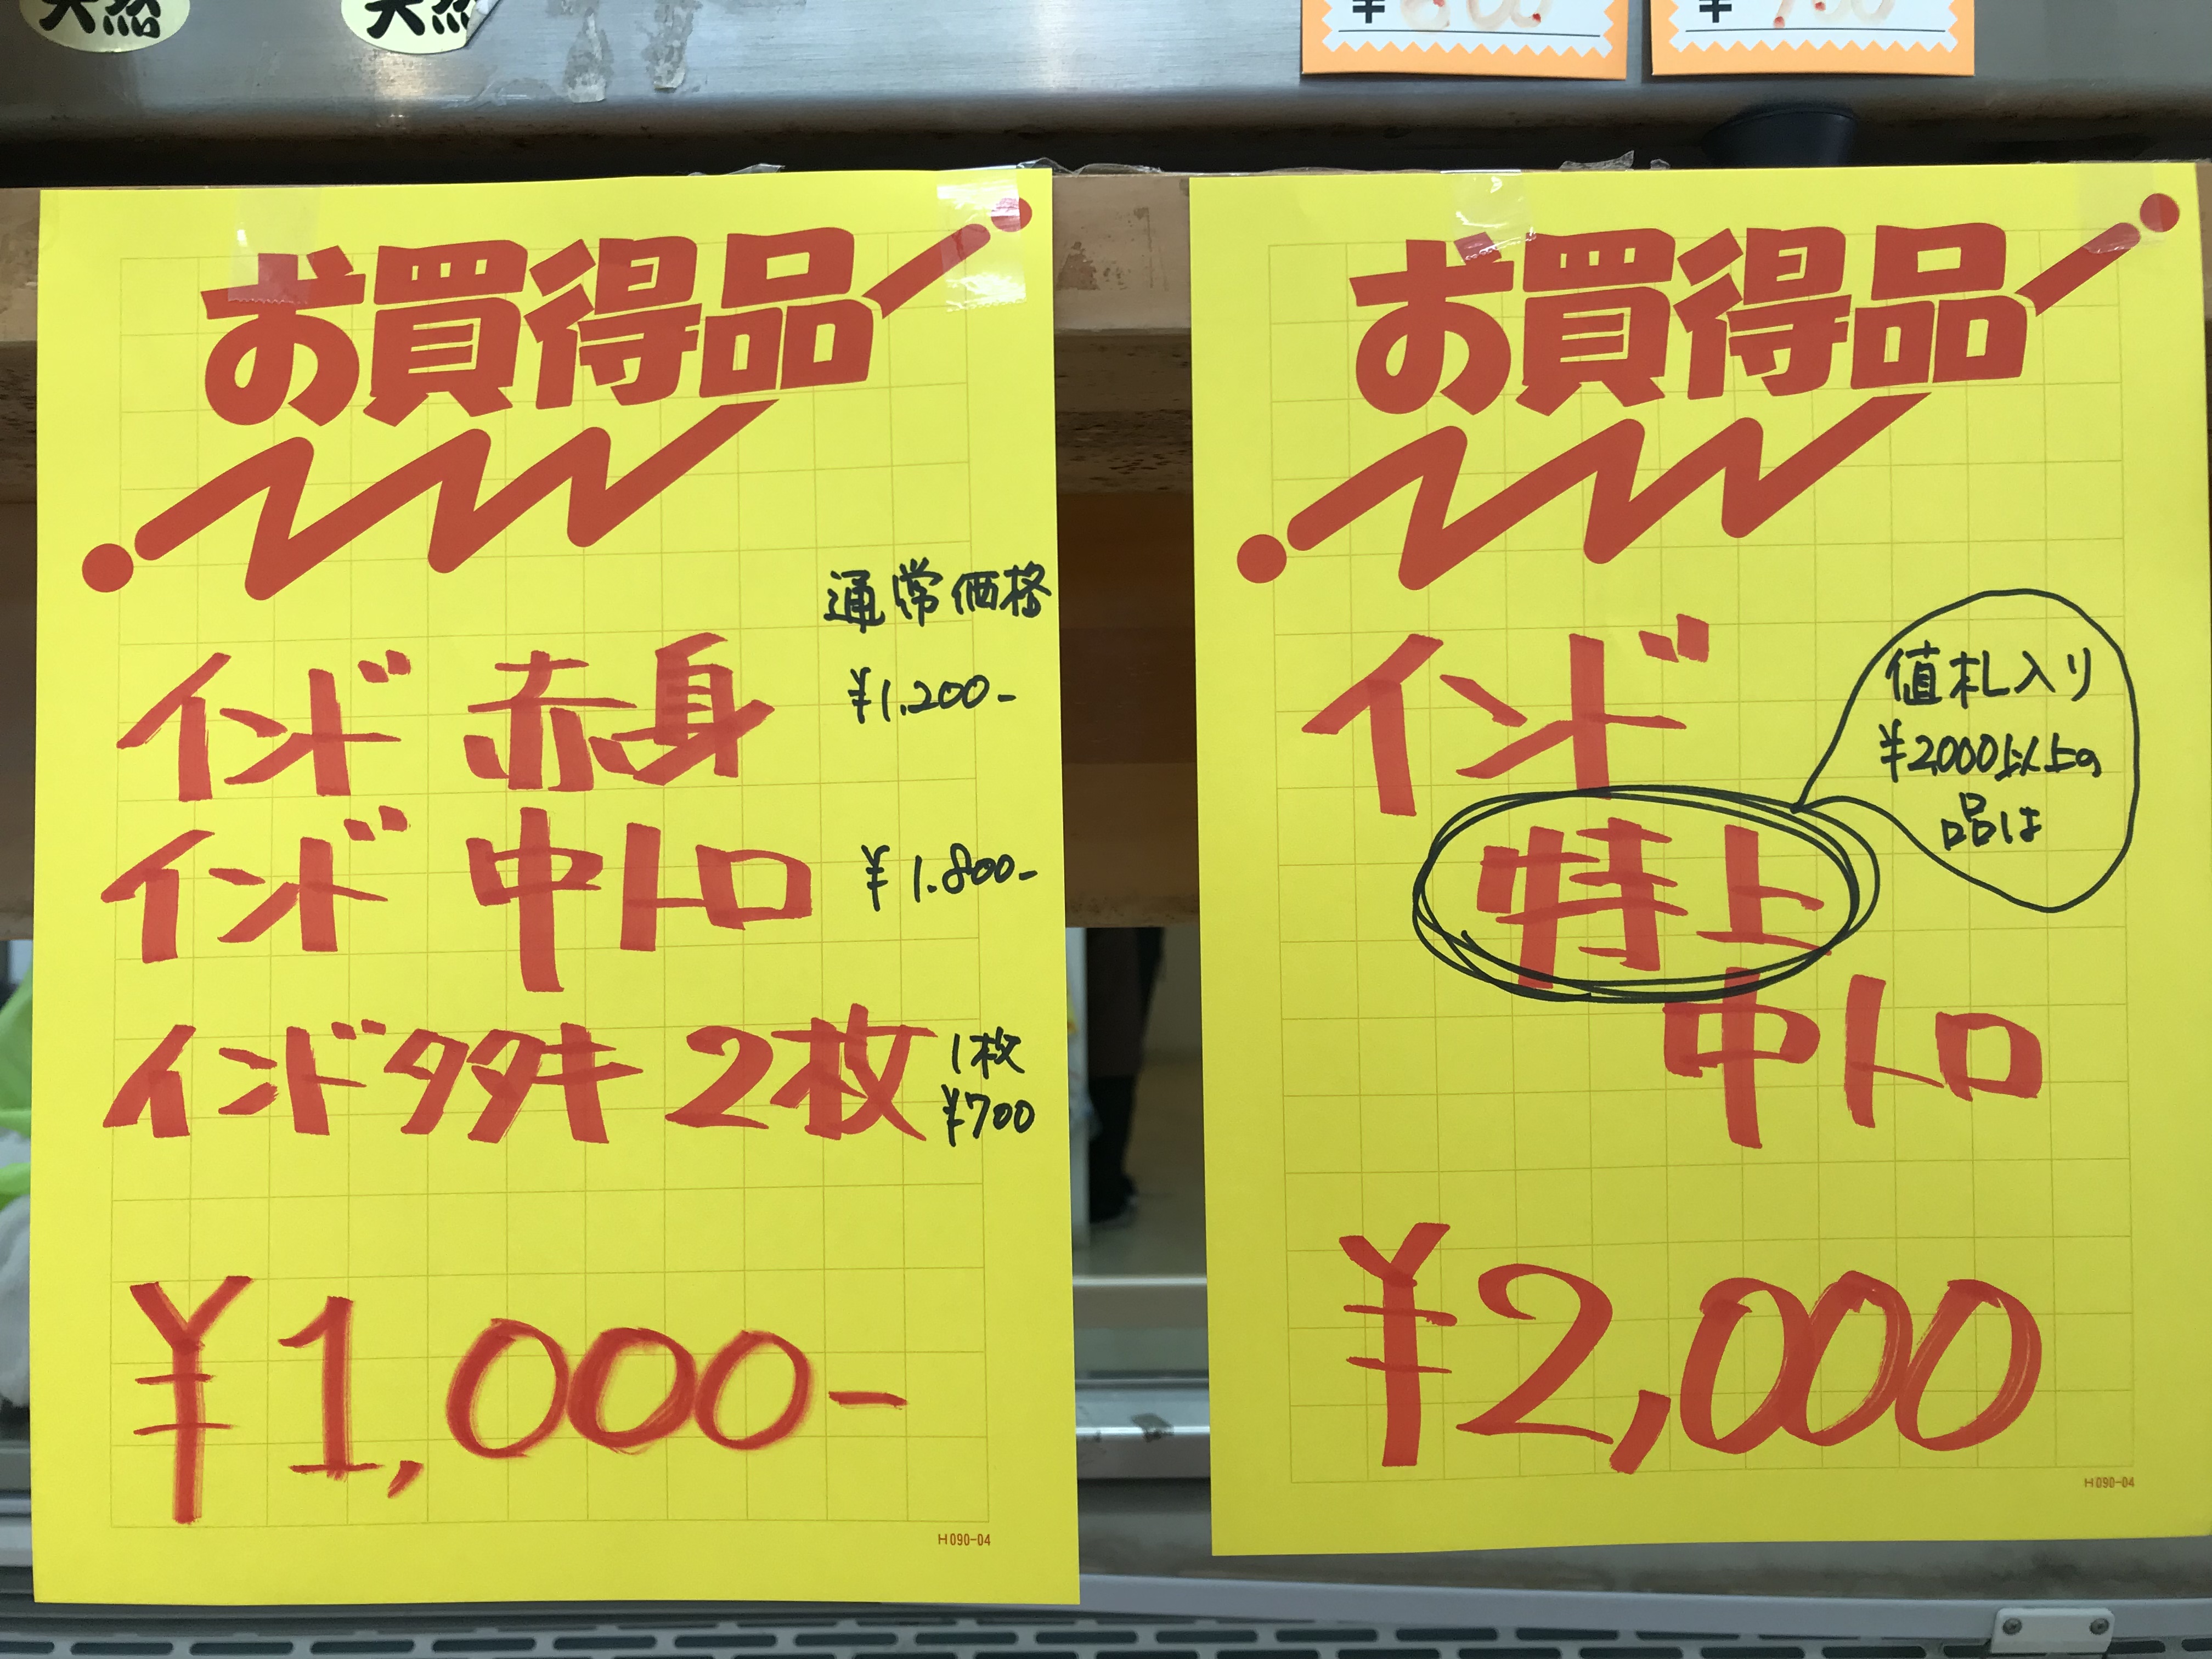 天然
天然
¥600
¥
お買得品
通常価格
インド 赤身 ¥1.200-
インド 中トロ ¥1.800-
インドタタキ 2枚 1枚
¥700
¥1,000-
H090-04
お買得品
インド
特上
中トロ
値札入り
¥2,000以上の
品は
¥2,000
H090-04